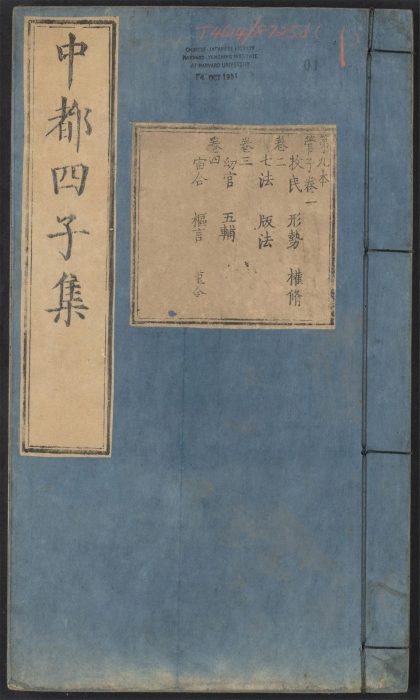 CHINESE-JAPANESE LIBRARY
HARVARD-YENCHING INSTITUTE
AT HARVARD UNIVERSITY
OCT 1951
01
中都四子集
第九本
管子卷一
牧民 形勢 權脩
卷二
七法 版法
卷三
幼官 五輔
卷四
宙合 樞言